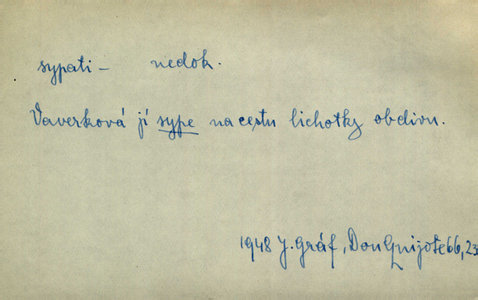 sypati – nedok.
Vaverková jí sype na cestu lichotky obdivu.
1948 J. Gráf, Don Quijote 66, 23